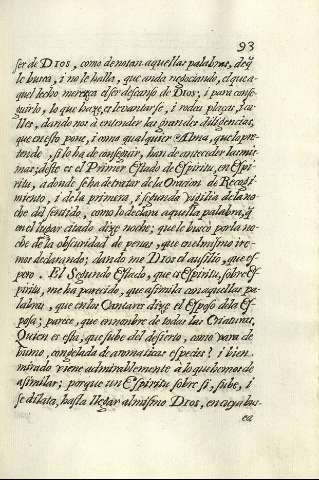 93
ser de DIOS, como denotan aquellas palabras, de q̃
le busca, i no le halla, que anda negociando, el que a
quel lecho merezca el ser descanso de DIOS, i para conse-
guirlo, lo que haze, es levantarse, i rodear plaças, i ca
lles, dando nos à entender las grandes diligencias,
que en esto pone, i como qualquier Alma, que lo pre-
tende, si lo ha de conseguir, han de anteceder las mis-
mas; deste es el Primer Estado de Espiritu, en Espi-
ritu, a donde se ha de tratar de la Oracion de Recogi-
miento, i de la primera, i segunda vigilia de la no
che del sentido, como lo declara aquella palabra, q̃
en el lugar citado dize noche; que le buscò por la no-
che de la obscuridad de penas, que en el mismo ire-
mos declarando; dando me DIOS el ausilio, que es-
pero. El Segundo Estado, que es Espiritu, sobre Es
piritu, me ha parecido, que asimila con aquellas pa-
labras, que en los Cantares dize el Esposo de la Es-
posa; parece, que en nombre de todas las Criaturas,
Quien es esta, que sube del desierto, como vara de
humo, congelada de aromaticas especies? i bien
mirado viene admirablemente à lo que hemos de
asimilar; porque un Espiritu sobre si, sube, i
se dilata, hasta llegar al mismo DIOS, en cuya bus-
ca